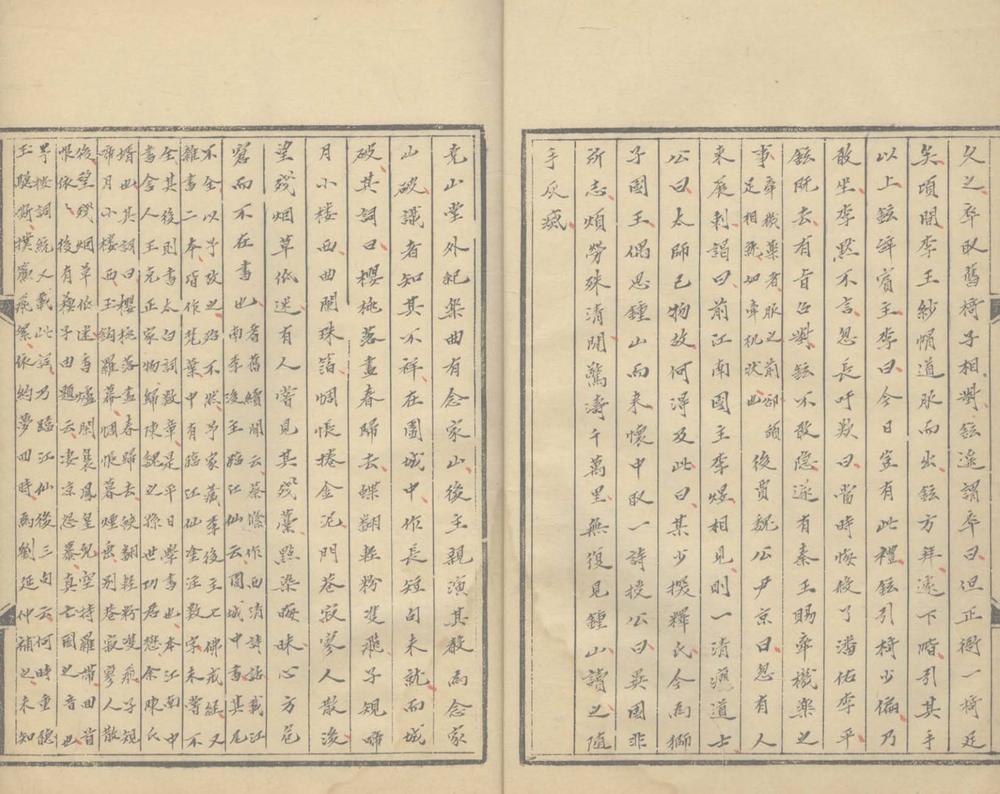 久之卒取舊椅子相對鉉遙謂卒曰但正衙一椅足
矣頃間李王紗帽道服而出鉉方拜遽下階引其手
以上鉉辭賓主李曰今日豈有此禮鉉引椅少偏乃
敢坐李默不言忽長吁歎曰當時悔殺了潘佑李平
鉉既去有旨召對鉉不敢隱遂有秦王賜牽機藥之
事牽機藥者服之前卻頭
足相就如牽機狀也後貴魏公尹京日忽有人
來展刺謁曰前江南國主李煜相見則一清瘦道士
公曰太師已物故何得及此曰某少探釋氏今為獅
子國王偶思鍾山而來懷中取一詩授公曰異國非
所志煩勞殊清閒驚濤千萬里無復見鍾山讀之隨
手灰滅
堯山堂外紀樂曲有念家山後主親演其聲為念家
山破識者知其不祥在圍城中作長短句未就而城
破其詞曰櫻桃落盡春歸去蝶翻輕粉雙飛子規啼
月小樓西曲闌珠箔惆悵捲金泥門巷寂寥人散後
望殘烟草依迷有人嘗見其殘藁點染晦昧心方危
窘而不在書也耆舊續聞云蔡絛作西清詩話載江
南李後主臨江仙云圍城中書其尾
不全以予攷之殆不然予家藏李後主七佛戒經又
雜書二本皆作梵葉中有臨江仙塗注數字未嘗不
全其後則書太白詞數章是平日學書也本江南中
書舍人王克正家物歸陳魏之孫世功君懋余陳氏
壻也其詞曰櫻桃落盡春歸去蝶翻輕粉雙飛子規
啼月小樓西玉鉤羅幕惆悵暮烟垂別巷寂寥人散
後望殘烟草低迷香爐閒裊鳳皇兒空持羅帶回首
恨依依後有蘇子由題云凄凉怨慕真亡國之音也
詞統人載此詞乃臨江仙後三句云何時重聽
玉驄嘶撲簾飛絮依約夢回時為劉延仲補之未知